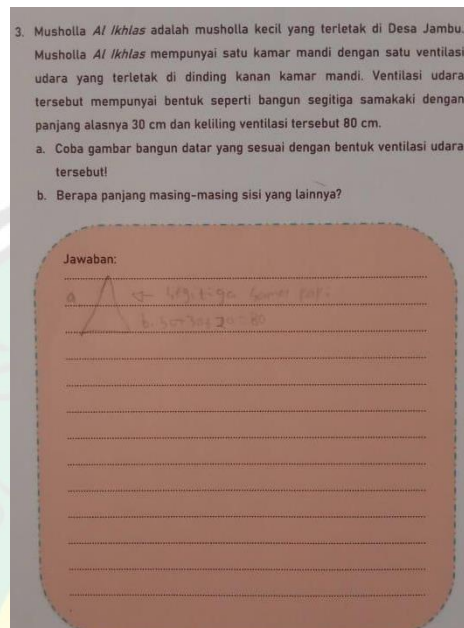 3. Musholla Al Ikhlas adalah musholla kecil yang terletak di Desa Jambu.
Musholla Al Ikhlas mempunyai satu kamar mandi dengan satu ventilasi
udara yang terletak di dinding kanan kamar mandi. Ventilasi udara
tersebut mempunyai bentuk seperti bangun segitiga samakaki dengan
panjang alasnya 30 cm dan keliling ventilasi tersebut 80 cm.
a. Coba gambar bangun datar yang sesuai dengan bentuk ventilasi udara
tersebut!
b. Berapa panjang masing-masing sisi yang lainnya?
Jawaban:
a. segitiga sama kaki
b.